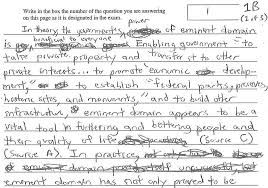 Write in the box the number of the question you are answering
on this page as it is designated in the exam.
1
1B
(2 of 5)
In theory the government's power of eminent domain
is beneficial to everyone. Enabling government "to
take private property and transfer it to other
private interests... to promote economic develop-
ment," "to establish "federal parks, preserves,
historic sites, and monuments," and to build other
infrastructure, eminent domain appears to be a
vital tool in furthering and bettering people and
their quality of life (Source C)
(Source A). In practice,
eminent domain has not only proved to be